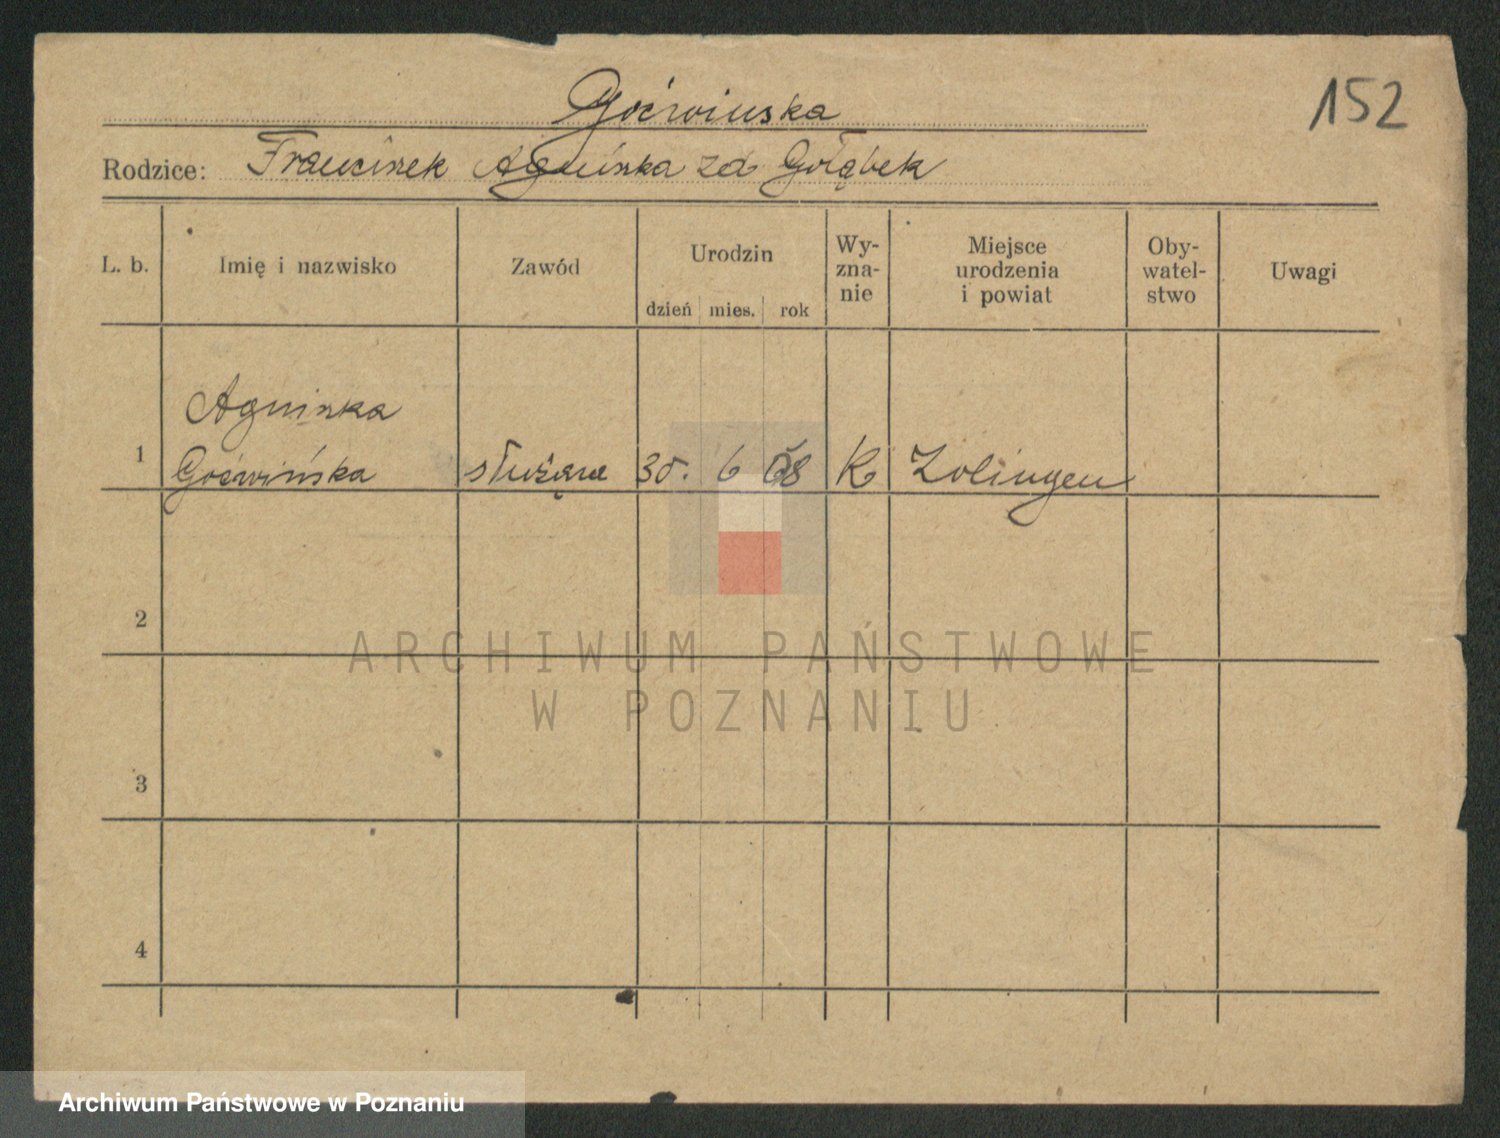 Goćwinska
152
Rodzice: Franciszek Agnieszka zd Gołąbek
L. b. Imię i nazwisko Zawód Urodzin dzień mies. rok Wy-zna-nie Miejsce urodzenia i powiat Oby-watel-stwo Uwagi
Agnieszka
1 Goćwińska służąca 30. 6 08 K Zolingen
2
3
4
ARCHIWUM PAŃSTWOWE
W POZNANIU
Archiwum Państwowe w Poznaniu